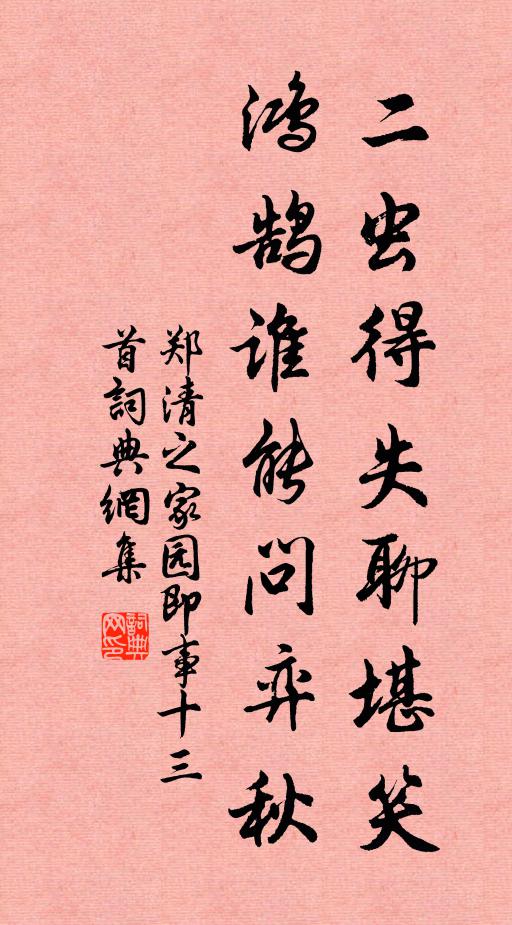 二虫得失聊堪笑
鸿鹄谁能问弈秋
郑清之家园即事十三
首詞典網集
詞典网印